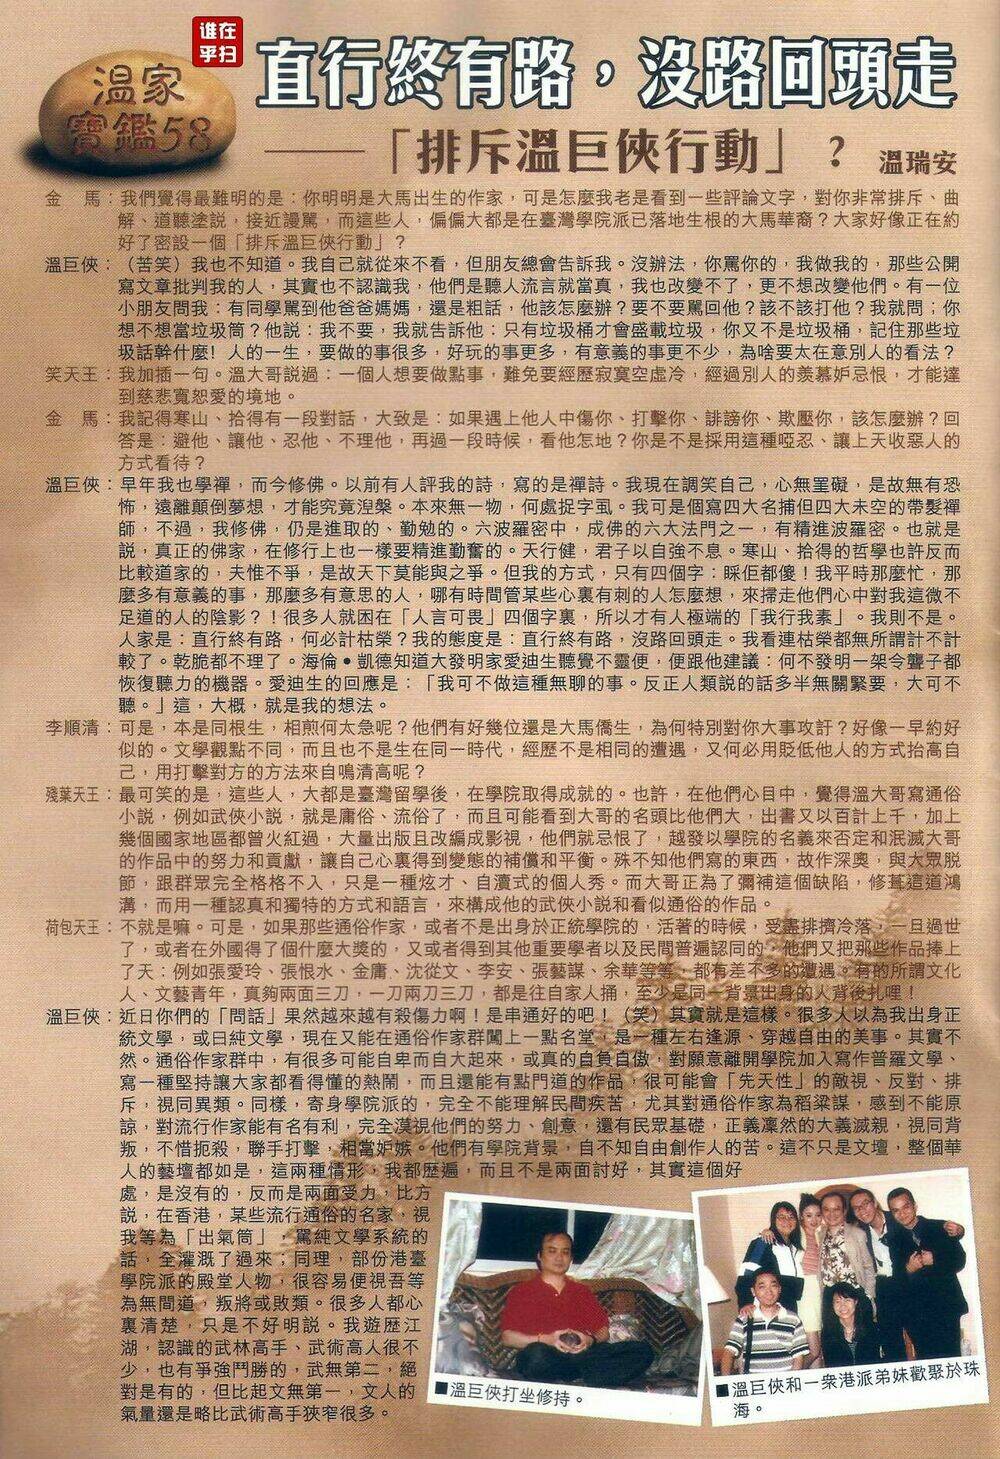 谁在
乎扫
溫家
寶鑑58
直行終有路，沒路回頭走
——「排斥溫巨俠行動」？ 溫瑞安
金　馬：我們覺得最難明的是：你明明是大馬出生的作家，可是怎麼我老是看到一些評論文字，對你非常排斥、曲
解、道聽塗説，接近謾罵，而這些人，偏偏大都是在臺灣學院派已落地生根的大馬華裔？大家好像正在約
好了密設一個「排斥溫巨俠行動」？
溫巨俠：（苦笑）我也不知道。我自己就從來不看，但朋友總會告訴我。沒辦法，你罵你的，我做我的，那些公開
寫文章批判我的人，其實也不認識我，他們是聽人流言就當真，我也改變不了，更不想改變他們。有一位
小朋友問我：有同學罵到他爸爸媽媽，還是粗話，他該怎麼辦？要不要罵回他？該不該打他？我就問；你
想不想當垃圾筒？他説：我不要，我就告訴他：只有垃圾桶才會盛載垃圾，你又不是垃圾桶，記住那些垃
圾話幹什麼！人的一生，要做的事很多，好玩的事更多，有意義的事更不少，為啥要太在意別人的看法？
笑天王：我加插一句。溫大哥説過：一個人想要做點事，難免要經歷寂寞空虛冷，經過別人的羨慕妒忌恨，才能達
到慈悲寬恕愛的境地。
金　馬：我記得寒山、拾得有一段對話，大致是：如果遇上他人中傷你、打擊你、誹謗你、欺壓你，該怎麼辦？回
答是：避他、讓他、忍他、不理他，再過一段時候，看他怎地？你是不是採用這種啞忍、讓上天收惡人的
方式看待？
溫巨俠：早年我也學禪，而今修佛。以前有人評我的詩，寫的是禪詩。我現在調笑自己，心無罣礙，是故無有恐
怖，遠離顛倒夢想，才能究竟涅槃。本來無一物，何處捉字虱。我可是個寫四大名捕但四大未空的帶髮禪
師，不過，我修佛，仍是進取的、勤勉的。六波羅密中，成佛的六大法門之一，有精進波羅密。也就是
説，真正的佛家，在修行上也一樣要精進勤奮的。天行健，君子以自強不息。寒山、拾得的哲學也許反而
比較道家的，夫惟不爭，是故天下莫能與之爭。但我的方式，只有四個字：睬佢都傻！我平時那麼忙，那
麼多有意義的事，那麼多有意思的人，哪有時間管某些心裏有刺的人怎麼想，來掃走他們心中對我這微不
足道的人的陰影？！很多人就困在「人言可畏」四個字裏，所以才有人極端的「我行我素」。我則不是。
人家是：直行終有路，何必計枯榮？我的態度是：直行終有路，沒路回頭走。我看連枯榮都無所謂計不計
較了。乾脆都不理了。海倫•凱德知道大發明家愛迪生聽覺不靈便，便跟他建議：何不發明一架令聾子都
恢復聽力的機器。愛迪生的回應是：「我可不做這種無聊的事。反正人類説的話多半無關緊要，大可不
聽。」這，大概，就是我的想法。
李順清：可是，本是同根生，相煎何太急呢？他們有好幾位還是大馬僑生，為何特別對你大事攻訐？好像一早約好
似的。文學觀點不同，而且也不是生在同一時代，經歷不是相同的遭遇，又何必用貶低他人的方式抬高自
己，用打擊對方的方法來自鳴清高呢？
殘葉天王：最可笑的是，這些人，大都是臺灣留學後，在學院取得成就的。也許，在他們心目中，覺得溫大哥寫通俗
小說，例如武俠小説，就是庸俗、流俗了，而且可能看到大哥的名頭比他們大，出書又以百計上千，加上
幾個國家地區都曾火紅過，大量出版且改編成影視，他們就忌恨了，越發以學院的名義來否定和泯滅大哥
的作品中的努力和貢獻，讓自己心裏得到變態的補償和平衡。殊不知他們寫的東西，故作深奧，與大眾脱
節，跟群眾完全格格不入，只是一種炫才、自瀆式的個人秀。而大哥正為了彌補這個缺陷，修葺這道鴻
溝，而用一種認真和獨特的方式和語言，來構成他的武俠小説和看似通俗的作品。
荷包天王：不就是嘛。可是，如果那些通俗作家，或者不是出身於正統學院的，活著的時候，受盡排擠冷落，一旦過世
了，或者在外國得了個什麼大獎的，又或者得到其他重要學者以及民間普遍認同的，他們又把那些作品捧上
了天：例如張愛玲、張恨水、金庸、沈從文、李安、張藝謀、余華等等，都有差不多的遭遇。有的所謂文化
人、文藝青年，真夠兩面三刀，一刀兩刀三刀，都是往自家人捅，至少是同一背景出身的人背後扎哩！
溫巨俠：近日你們的「問話」果然越來越有殺傷力啊！是串通好的吧！（笑）其實就是這樣。很多人以為我出身正
統文學，或曰純文學，現在又能在通俗作家群闖上一點名堂，是一種左右逢源、穿越自由的美事。其實不
然。通俗作家群中，有很多可能自卑而自大起來，或真的自負自傲，對願意離開學院加入寫作普羅文學、
寫一種堅持讓大家都看得懂的熱鬧，而且還能有點門道的作品，很可能會「先天性」的敵視、反對、排
斥，視同異類。同樣，寄身學院派的，完全不能理解民間疾苦，尤其對通俗作家為稻粱謀，感到不能原
諒，對流行作家能有名有利，完全漠視他們的努力、創意，還有民眾基礎，正義凜然的大義滅親，視同背
叛，不惜扼殺，聯手打擊，相當妒嫉。他們有學院背景，自不知自由創作人的苦。這不只是文壇，整個華
人的藝壇都如是，這兩種情形，我都歷遍，而且不是兩面討好，其實這個好
處，是沒有的，反而是兩面受力，比方
説，在香港，某些流行通俗的名家，視
我等為「出氣筒」，罵純文學系統的
話，全灌溉了過來；同理，部份港臺
學院派的殿堂人物，很容易便視吾等
為無間道，叛將或敗類。很多人都心
裏清楚，只是不好明説。我遊歷江
湖，認識的武林高手、武術高人很不
少，也有爭強鬥勝的，武無第二，絕
對是有的，但比起文無第一，文人的
氣量還是略比武術高手狹窄很多。
■溫巨俠打坐修持。
■溫巨俠和一眾港派弟妹歡聚於珠
海。